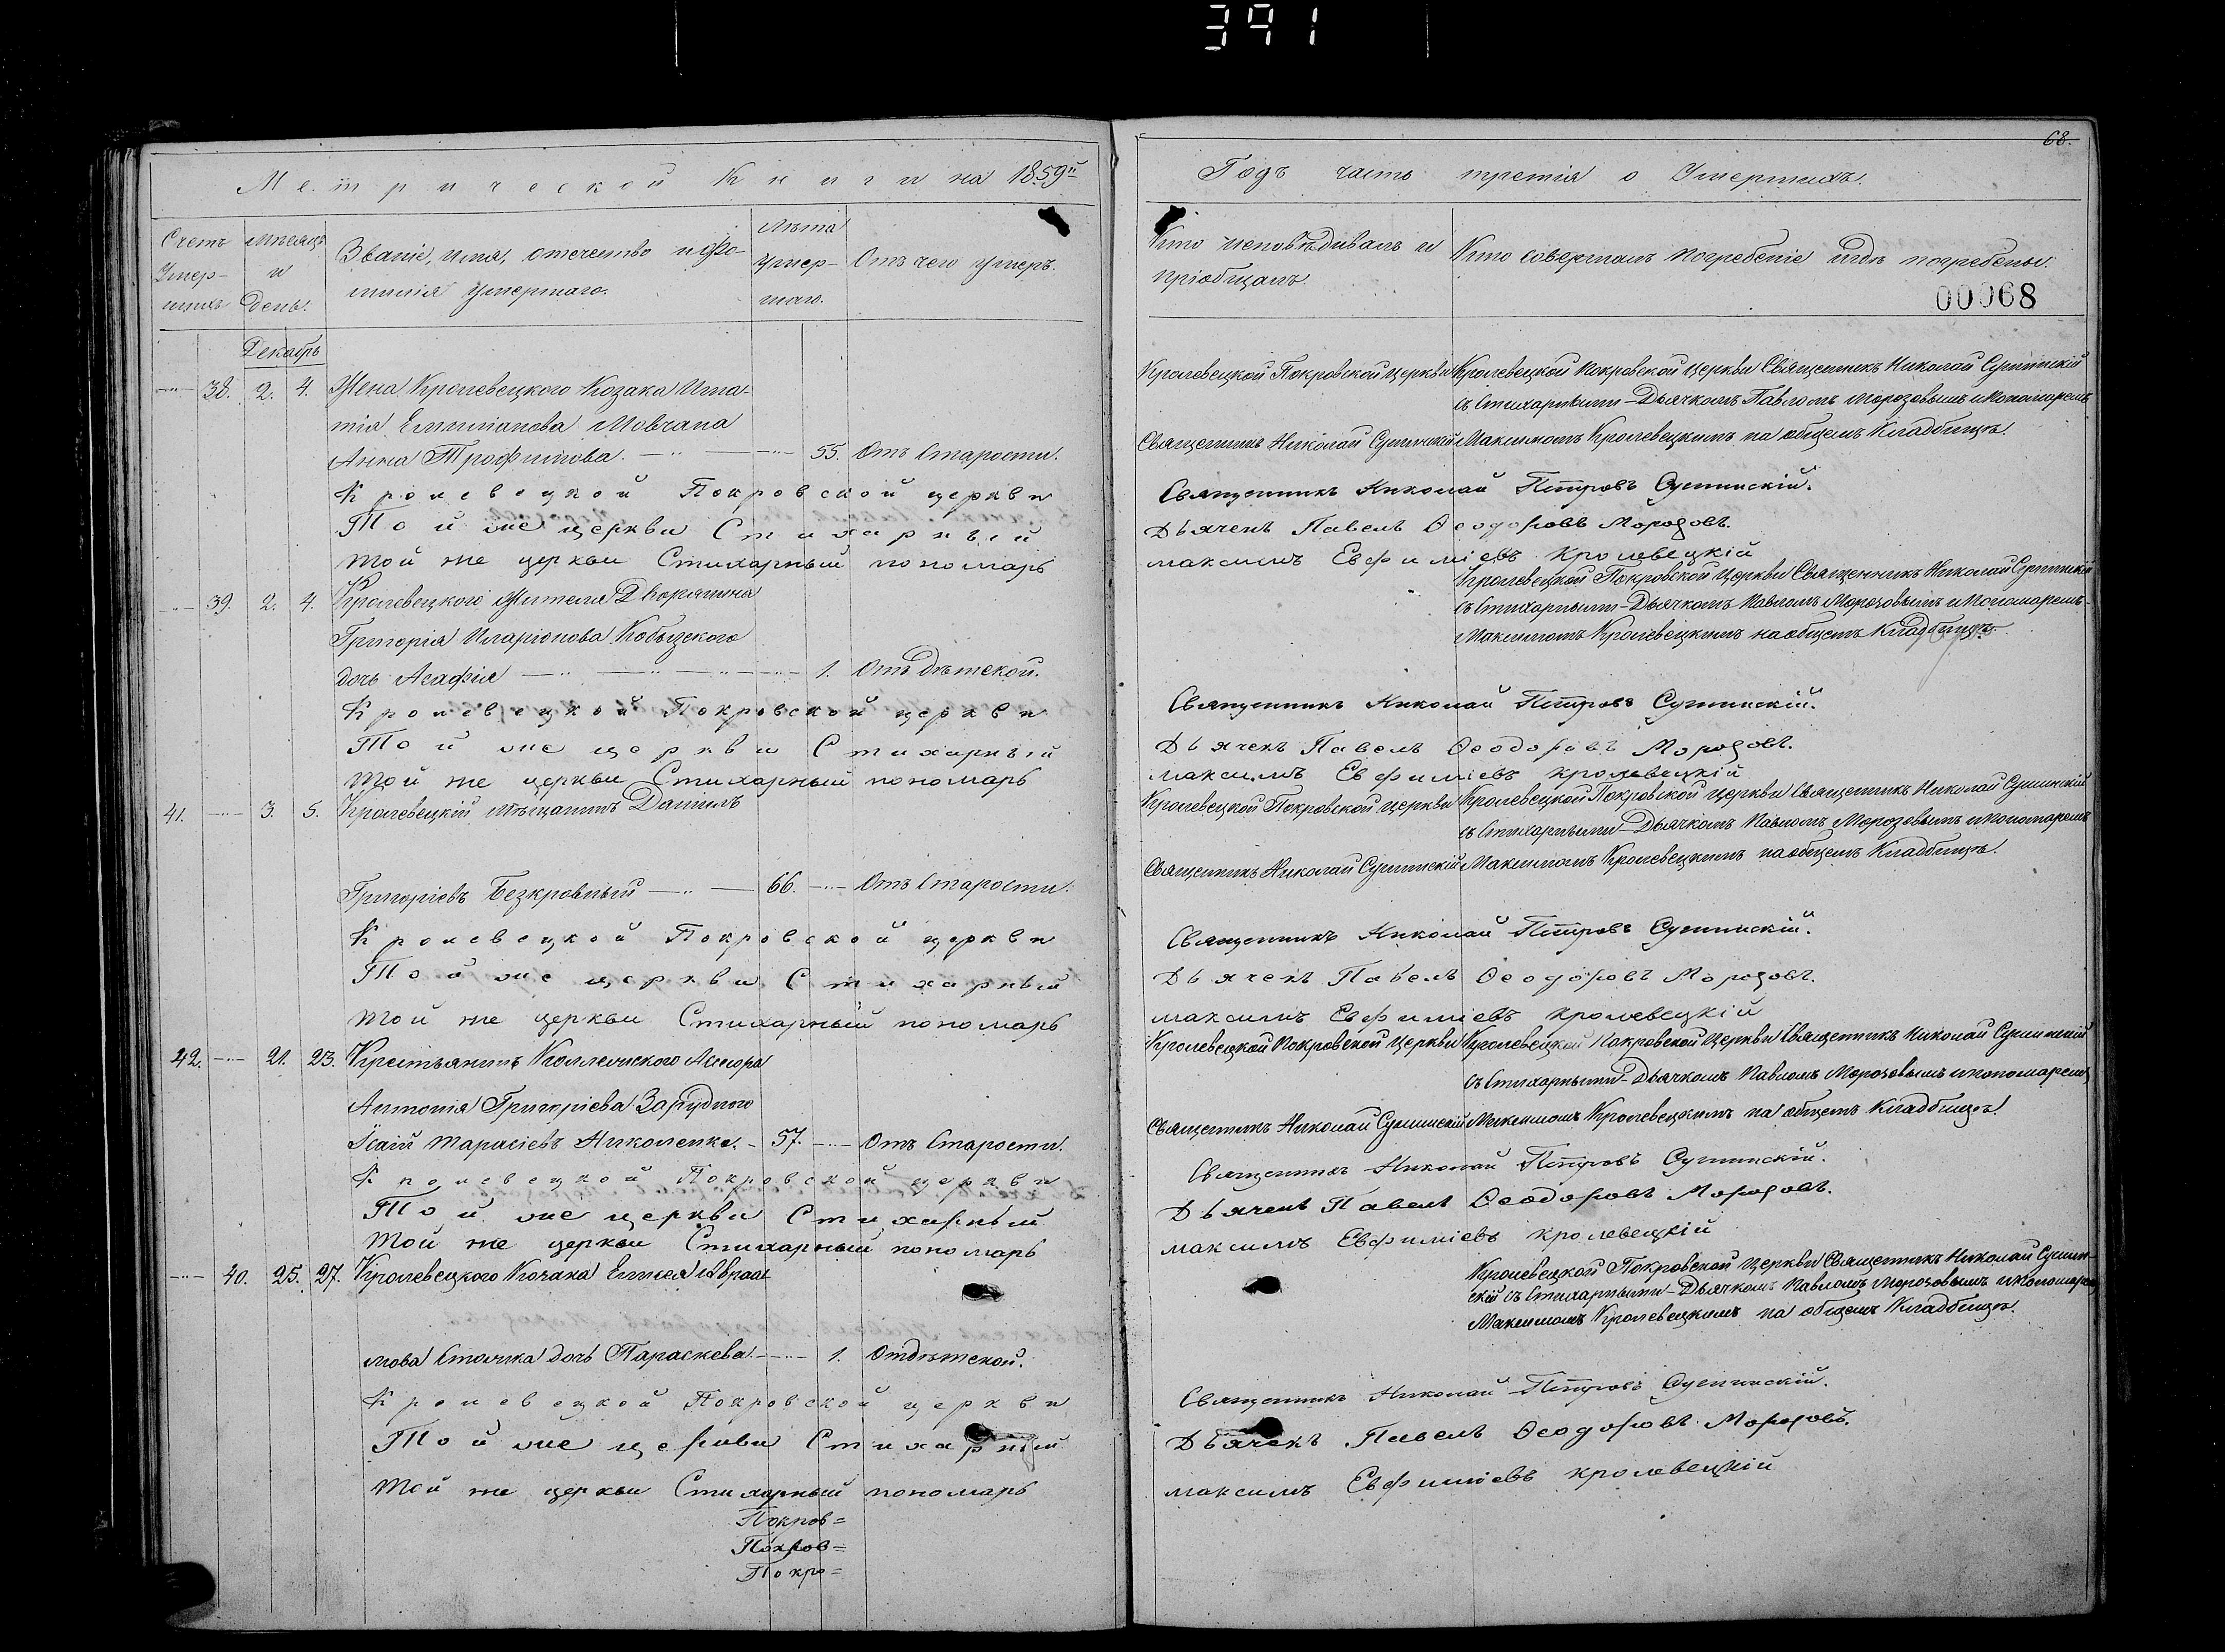 391
68.
Метрической Книги на 1859й
Годъ часть третія о Умершихъ.
Счетъ Умер-шихъ
мѣсяцъ и день.
Званіе, имя, отчество и фа-
милія умершаго.
Лѣта умер-шаго.
Отъ чего умеръ.
Кто исповѣдивалъ и
пріобщалъ.
Кто совершалъ погребеніе и гдѣ погребены.
00068
Декабрь
38. 2. 4. Жена Кролевецкого Козака Игна-
тія Емиліанова Мовчана
Анна Трофимова. 55. Отъ Старости.
Кролевецкой Покровской церкви
Священникъ Николай Сулимскій
Кролевецкой Покровской Церкви Священникъ Николай Сулимскій
съ Стихарными - Дьячкомъ Павломъ Морозовымъ и Пономаремъ
Максимомъ Кролевецкимъ на общемъ Кладбищѣ.
Кролевецкой Покровской церкви Священникъ Николай Петровъ Сулимскій.
Той же церкви Стихарный Дьячекъ Павелъ Ѳеодоровъ Морозовъ.
той же церкви Стихарный пономарь максимъ Евфиміевъ Кролевецкій
39. 2. 4. Кролевецкого Жителя Дворянина
Григорія Иларіонова Кобызского
дочь Агафія 1. Отъ дѣтской.
Кролевецкой Покровской Церкви Священникъ Николай Сулимскій
съ Стихарными - Дьячкомъ Павломъ Морозовымъ и Пономаремъ-
Максимомъ Кролевецкимъ на общемъ Кладбищѣ.
Кролевецкой Покровской церкви Священникъ Николай Петровъ Сулимскій.
Той же церкви Стихарный Дьячекъ Павелъ Ѳеодоровъ Морозовъ.
той же церкви Стихарный пономарь максимъ Евфиміевъ кролевецкій
41. 3. 5. Кролевецкій мѣщанинъ Даніилъ
Григоріевъ Безкровный 66. Отъ Старости.
Кролевецкой Покровской церкви
Священникъ Николай Сулимскій
Кролевецкой Покровской церкви Священникъ Николай Сулимскій
съ Стихарными - Дьячкомъ Павломъ Морозовымъ и Пономаремъ
Максимомъ Кролевецкимъ на общемъ Кладбищѣ.
Кролевецкой Покровской церкви Священникъ Николай Петровъ Сулимскій.
Той же церкви Стихарный Дьячекъ Павелъ Ѳеодоровъ Морозовъ.
той же церкви Стихарный пономарь максимъ Евфиміевъ кролевецкій
42. 21. 23. Крестьянинъ Коллежского Асесора
Антонія Григоріева Зарудного
Ісаій Тарасіевъ Николенко. 57. Отъ Старости.
Кролевецкой Покровской Церкви
Священникъ Николай Сулимскій
Кролевецкой Покровской Церкви Священникъ Николай Сулимский
съ Стихарными - Дьячкомъ Павломъ Морозовымъ и пономаремъ
Максимомъ Кролевецкимъ на общемъ Кладбищѣ.
Кролевецкой Покровской церкви Священникъ Николай Петровъ Сулимскій.
Той же церкви Стихарный Дьячекъ Павелъ Ѳеодоровъ Морозовъ.
той же церкви Стихарный пономарь максимъ Евфиміевъ кролевецкій
40. 25. 27. Кролевецкого Козака Елисея Авраа-
мова дочь Параскева. 1. Отъ дѣтской.
Кролевецкой Покровской Церкви Священникъ Николай Сулим-
скій съ Стихарными - Дьячкомъ Павломъ Морозовымъ и Пономаремъ
Максимомъ Кролевецкимъ на общемъ Кладбищѣ.
Кролевецкой Покровской церкви Священникъ Николай Петровъ Сулимскій.
Той же церкви Стихарный Дьячекъ Павелъ Ѳеодоровъ Морозовъ.
той же церкви Стихарный пономарь максимъ Евфиміевъ кролевецкій
Покров=
Покров=
Покро=